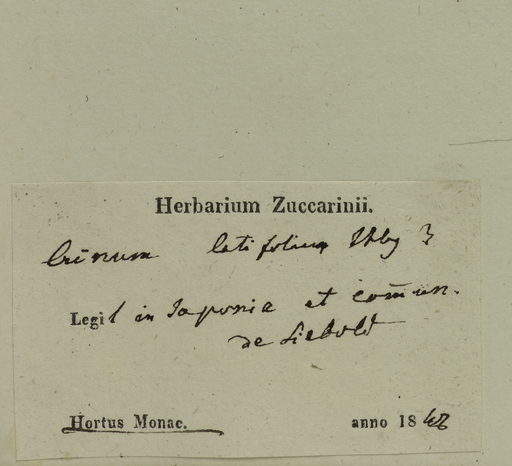 Herbarium Zuccarinii.
Crinum latifolium Thbg
Legit in Japonia et com̄un.
de Siebold
Hortus Monac. anno 1842